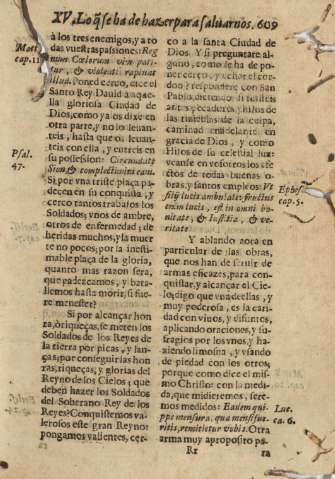 XV, Lo q̃ se ha de hazer para saluarnos. 609
à los tres enemigos, y a to
das vuestras passiones: Reg
num Cœlorum vim pati-
tur, & violenti rapiunt
illud, poned cerco, dize el
Santo Rey Dauid a aque-
lla gloriosa Ciudad de
Dios, como ya os dixe en
otra parte, y no lo leuan-
teis, hasta que os leuan-
teis con ella, y entreis en
su possession: Circumdate
Sion, & complectimini eam.
Si por vna triste plaça pa-
decen en su conquista, y
cerco tantos trabajos los
Soldados; vnos de ambre,
otros de enfermedad; de
heridas muchos, y la muer
te no pocos; por la inesti-
mable plaça de la gloria,
quanto mas razon sera,
que padezcamos, y bata-
llemos hasta morir, si fue-
re menester?
Si por alcançar hon
ra, ò riqueças, se meten los
Soldados de los Reyes de
la tierra por picas, y lan-
ças; por conseguir las hon
ras, riqueças, y glorias del
Reyno de los Cielos; que
deben hazer los Soldados
del Soberano Rey de los
Reyes? Conquistemos va-
lerosos este gran Reyno:
pongamos valientes, cer-
Matt.
cap. 11
Psal.
47.
co a la santa Ciudad de
Dios. Y si preguntare al-
guno, como se ha de po-
ner cerco, y echar el cor-
don? respondere con San
Pablo, diziendo:
de las tinieblas de la culpa,
caminad en
gracia de Dios, y como
Hijos de su celestial luz:
veanse en vosotros los efe
ctos de todas buenas o-
bras, y santos empleos: Vt
filij lucis ambulate: fructus
enim lucis, est in omni bo-
nitate, & Iustitia, & ve-
ritate.
Y ablando aora en
particular de las obras,
que nos han de seruir de
armas eficazes, para con-
quistar, y alcançar el Cie-
lo; digo que vna dellas, y
muy poderosa, es la cari-
dad con viuos, y difuntos,
aplicando oraciones, y su-
fragios por los vnos, y ha-
ziendo limosna, y vsando
de piedad con los otros;
porque como dize el mis-
mo Christo: con la medi-
da, que midieremos, sere-
mos medidos: Eadem qui-
ppe mensura, qua mensifue-
ritis, remitietur vobis. Otra
arma muy aproposito pa-
Ephes.
cap. 5.
Luc.
ca. 6.
Rr
ra